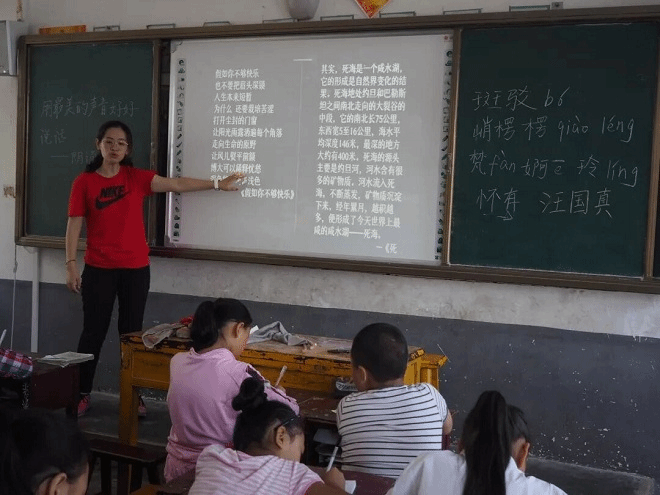 用最美的声音对好好
说话
假如你不够快乐
也不要把眉头深锁
人生本来短暂
为什么 还要栽培苦涩
打开尘封的门窗
让阳光雨露洒遍每个角落
走向生命的原野
让风儿熨平前额
博大可以稀释忧愁
浅色
《假如你不够快乐》
其实，死海是一个咸水湖，
它的形成是自然界变化的结
果。死海地处约旦和巴勒斯
坦之间南北走向的大裂谷的
中段，它的南北长75公里，
东西宽5至16公里，海水平
均深度146米，最深的地方
大约有400米。死海的源头
主要是约旦河，河水含有很
多的矿物质。河水流入死
海，不断蒸发，矿物质沉淀
下来，经年累月，越积越
多，便形成了今天世界上最
咸的咸水湖——死海。
—《死
斑驳 bó
峭楞楞 qiào léng
梵fàn 婀 玲 líng
怀有 汪国真